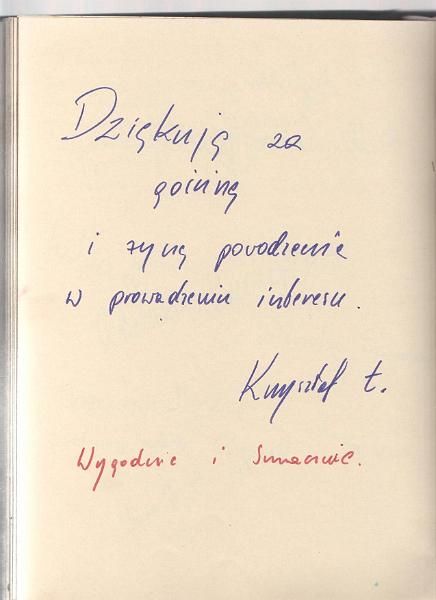 Dziękuję za
gościnę
i życzę powodzenia
w prowadzeniu interesu.
Krzysztof t.
Wygodnie i Smacznie.